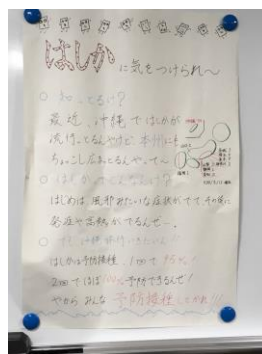 はしか
に気をつけられ〜
○ 知っとるけ?
最近、沖縄ではしかが
流行っとるんやけど、本州にも
ちょっこし広まっとるんやって〜
○ はしかってどんなんけ?
はじめは、風邪みたいな症状がでて、その後に
発疹や高熱がでるんぜ〜。
はしかは予防接種、1回で95%!
2回でほぼ100%予防できるんぜ!
やから みんな 予防接種しとかれ!!!